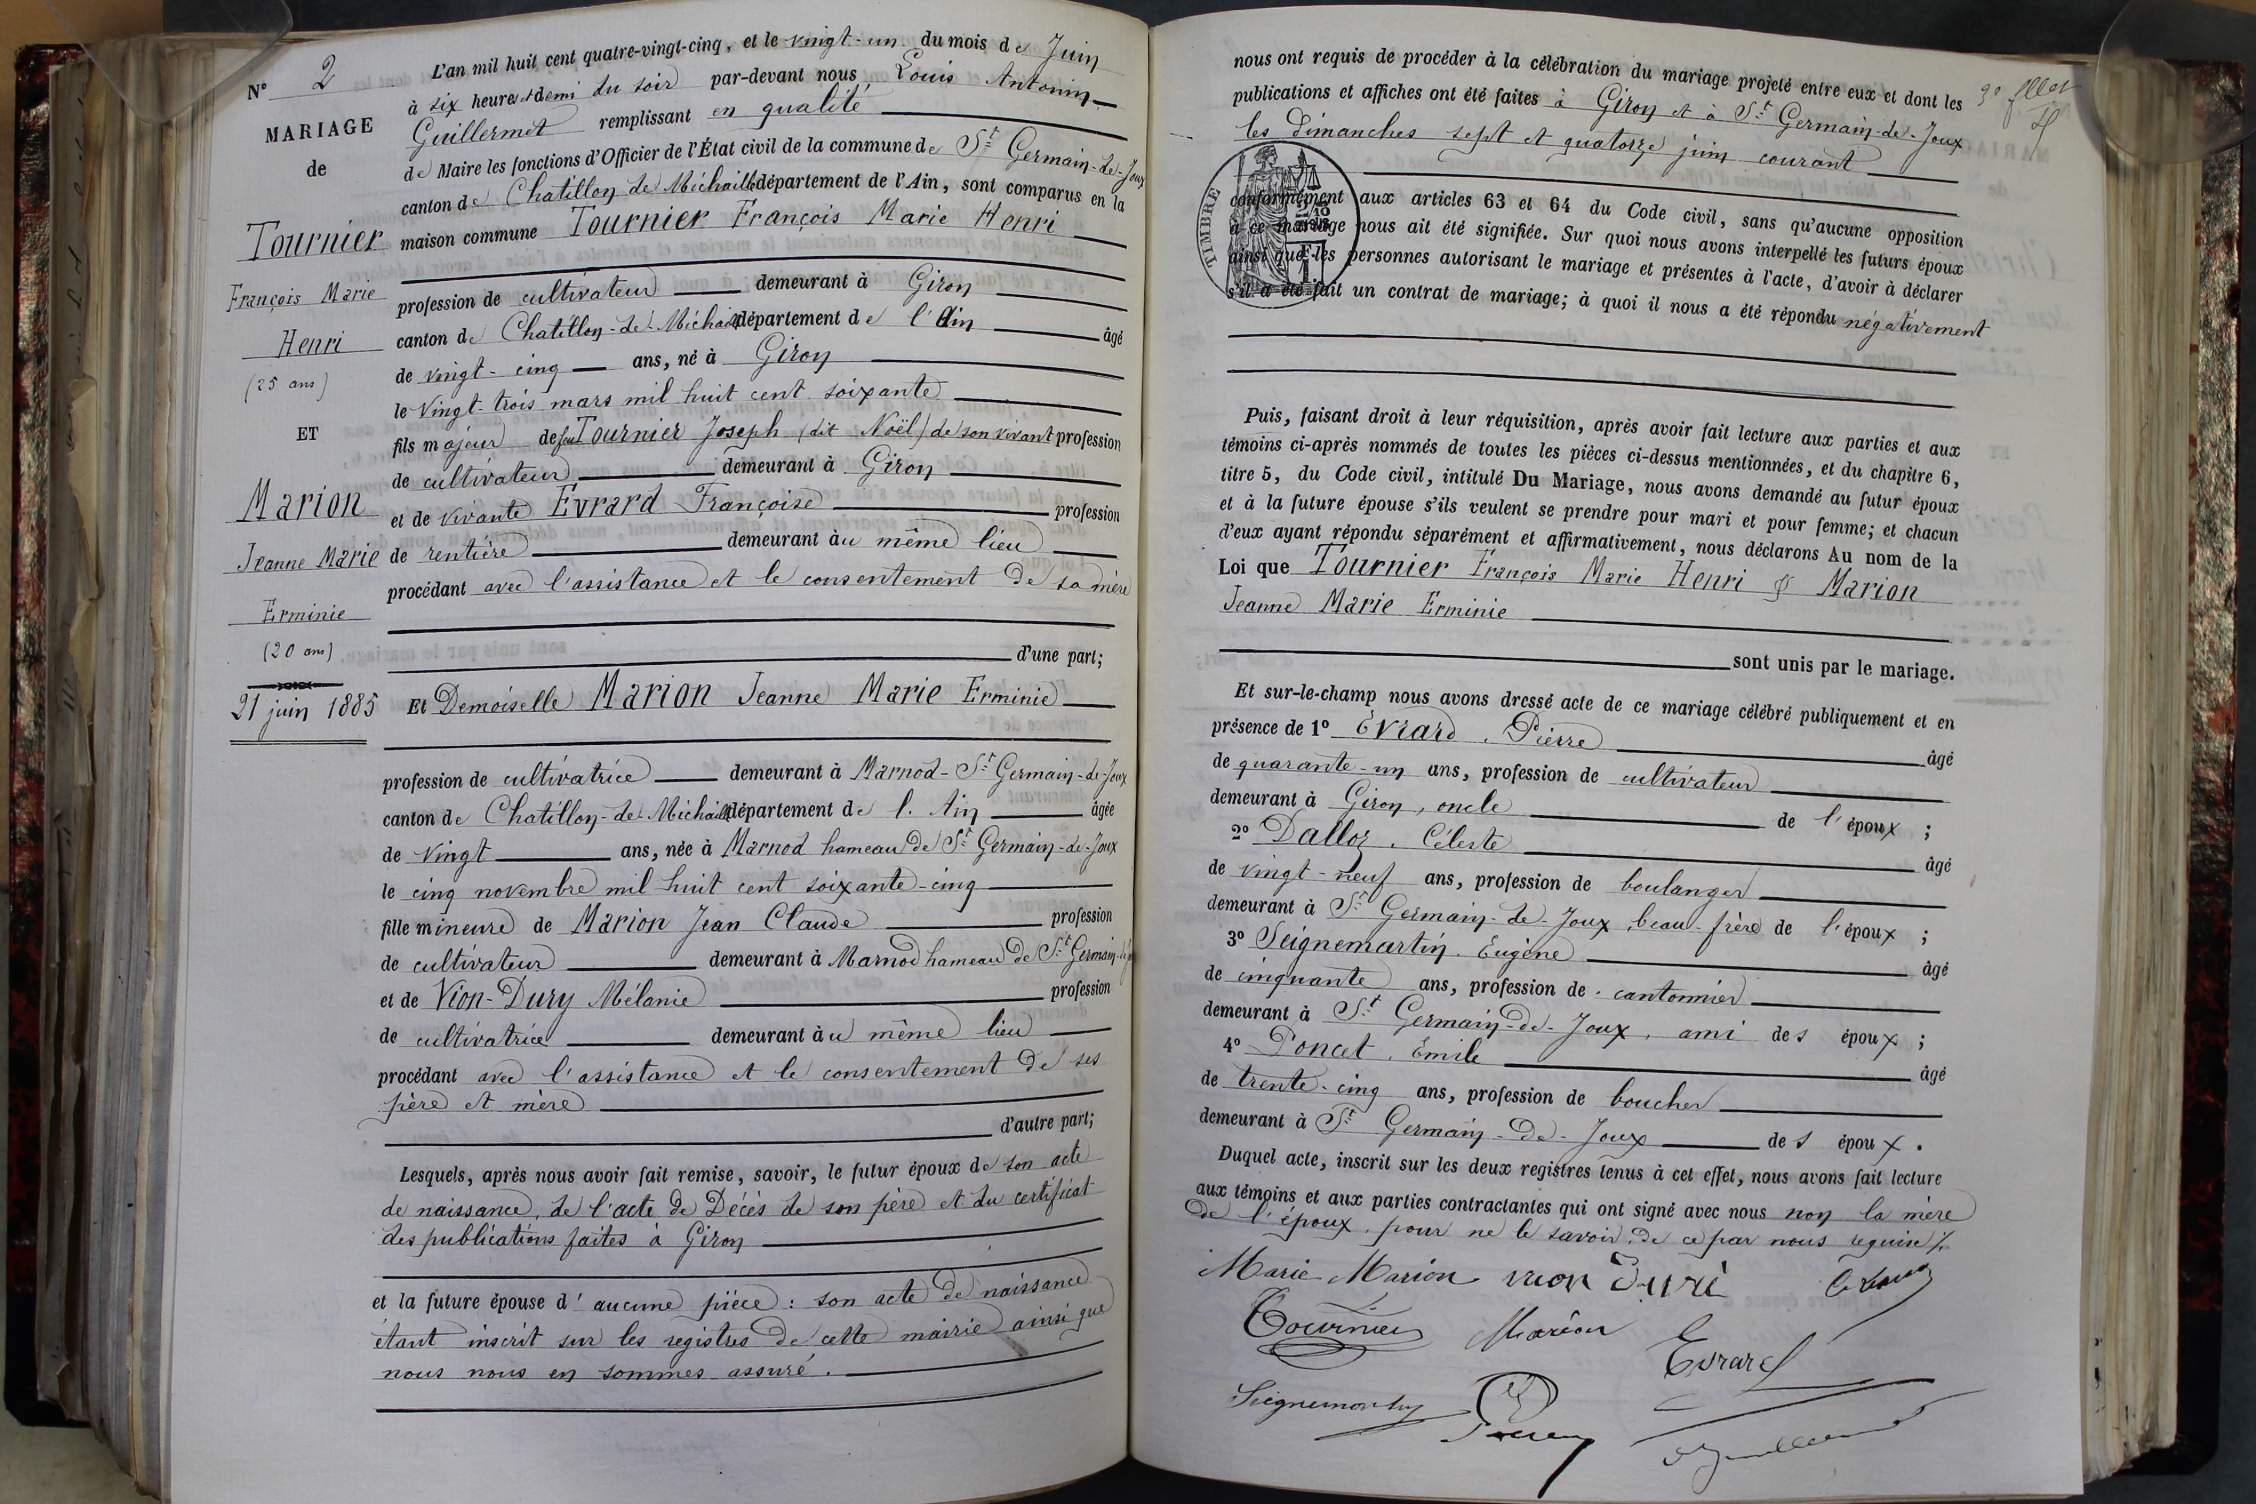 N° 2
MARIAGE
de
Tournier
François Marie
Henri
(25 ans)
ET
Marion
Jeanne Marie
Erminie
(20 ans)
21 juin 1885
L'an mil huit cent quatre-vingt-cinq, et le vingt-un du mois de Juin
à six heures et demi du soir par-devant nous, Louis Antonin
Guillermet remplissant en qualité
de Maire les fonctions d'Officier de l'État civil de la commune de St Germain-de-Joux
canton de Chatillon de Michaille département de l'Ain, sont comparus en la
maison commune Tournier François Marie Henri
profession de cultivateur demeurant à Giron
canton de Chatillon-de-Michaille département de l'Ain âgé
de vingt-cinq ans, né à Giron
le vingt-trois mars mil huit cent soixante
fils majeur de feu Tournier Joseph (dit Noël) de son vivant profession
de cultivateur demeurant à Giron
et de vivante Evrard Françoise profession
de rentière demeurant au même lieu
procédant avec l'assistance et le consentement de sa mère
d'une part;
Et Demoiselle Marion Jeanne Marie Erminie
profession de cultivatrice demeurant à Marnod-St Germain-de-Joux
canton de Chatillon-de-Michaille département de l'Ain âgée
de vingt ans, née à Marnod hameau de St Germain-de-Joux
le cinq novembre mil huit cent soixante-cinq
fille mineure de Marion Jean Claude profession
de cultivateur demeurant à Marnod hameau de St Germain
et de Vion-Dury Mélanie profession
de cultivatrice demeurant au même lieu
procédant avec l'assistance et le consentement de ses
père et mère
d'autre part;
Lesquels, après nous avoir fait remise, savoir, le futur époux de son acte
de naissance, de l'acte de Décès de son père et du certificat
des publications faites à Giron
et la future épouse d'aucune pièce: son acte de naissance
étant inscrit sur les registres de cette mairie ainsi que
nous nous en sommes assuré.
nous ont requis de procéder à la célébration du mariage projeté entre eux et dont les
publications et affiches ont été faites à Giron et à St Germain-de-Joux
les dimanches sept et quatorze juin courant
TIMBRE
conformément aux articles 63 et 64 du Code civil, sans qu'aucune opposition
à ce mariage nous ait été signifiée. Sur quoi nous avons interpellé les futurs époux
ainsi que les personnes autorisant le mariage et présentes à l'acte, d'avoir à déclarer
s'il a été fait un contrat de mariage; à quoi il nous a été répondu négativement
Puis, faisant droit à leur réquisition, après avoir fait lecture aux parties et aux
témoins ci-après nommés de toutes les pièces ci-dessus mentionnées, et du chapitre 6,
titre 5, du Code civil, intitulé Du Mariage, nous avons demandé au futur époux
et à la future épouse s'ils veulent se prendre pour mari et pour femme; et chacun
d'eux ayant répondu séparément et affirmativement, nous déclarons Au nom de la
Loi que Tournier François Marie Henri & Marion
Jeanne Marie Erminie
sont unis par le mariage.
Et sur-le-champ nous avons dressé acte de ce mariage célébré publiquement et en
présence de 1° Evrard, Pierre âgé
de quarante-un ans, profession de cultivateur
demeurant à Giron, oncle de l'époux;
2° Dalloz, Céleste âgé
de vingt-neuf ans, profession de boulanger
demeurant à St Germain-de-Joux, beau-frère de l'époux;
3° Seignemartin, Eugène âgé
de cinquante ans, profession de cantonnier
demeurant à St Germain-de-Joux, ami des époux;
4° Poncet, Emile âgé
de trente-cinq ans, profession de boucher
demeurant à St Germain-de-Joux des époux.
Duquel acte, inscrit sur les deux registres tenus à cet effet, nous avons fait lecture
aux témoins et aux parties contractantes qui ont signé avec nous non la mère
de l'époux, pour ne le savoir, de ce par nous requise
Marie Marion
Tournier Marion Evrard